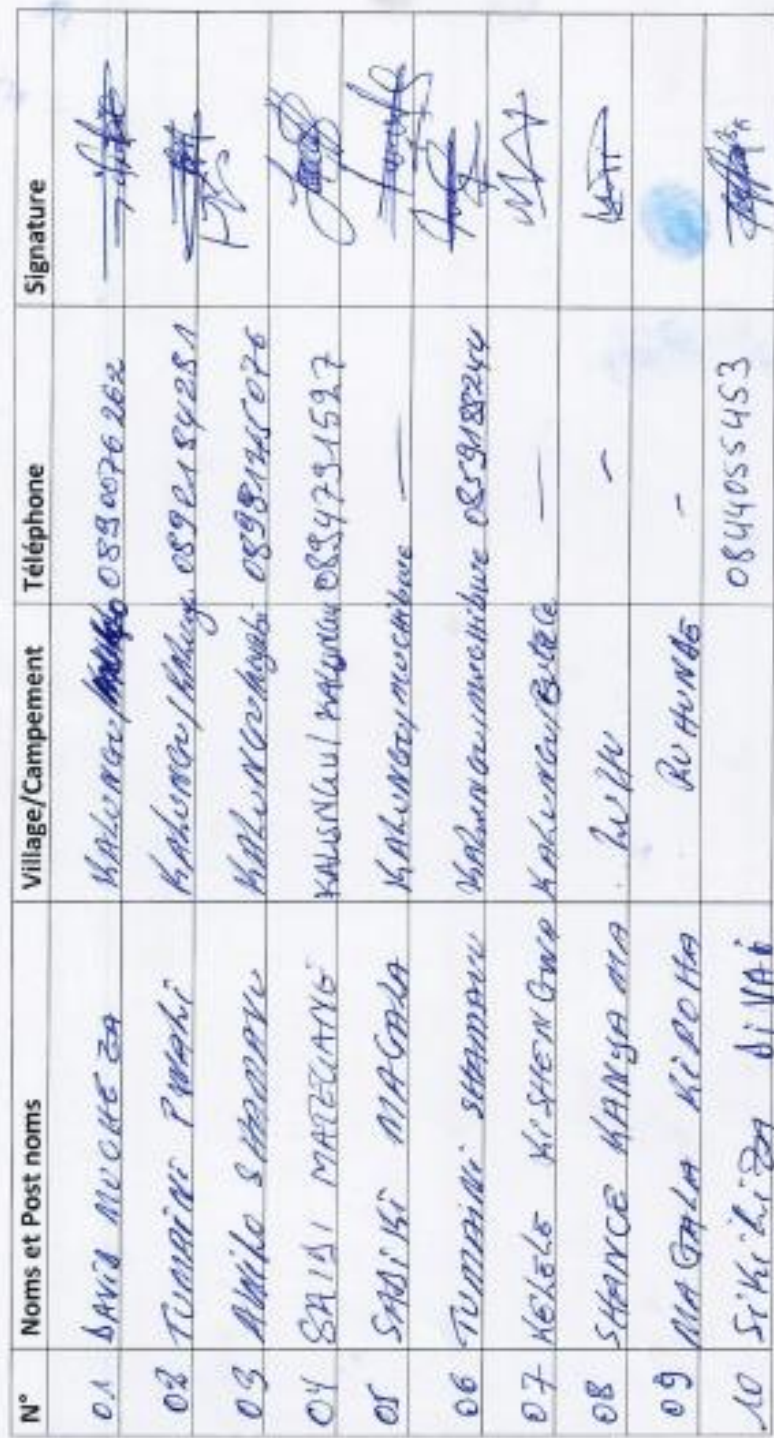 N° Noms et Post noms Village/Campement Téléphone Signature
01 DAVID MUCHEZA KALUNGU/ 0890076262
02 TUMAINI PWALI KALUNGU/KALUNGU
03 SHAMAVU KALUNGU/
04 SAIDI KALUNGU/KALUNGU 0894791597
05 SADIKI MAGALA KALUNGU/MUCHIBWE —
06 TUMAINI SHAMAVU KALUNGU/MUCHIBWE 0859188244
07 KELELE KISHENGWA KALUNGU/ —
08 SHANCE KANYAMA -
09 MAGALA KIROHA RUHUNDE -
10 SIKILIZA DIVAI 0844055453